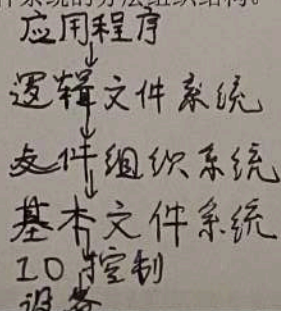 件系统的分层组织结构。
应用程序
逻辑文件系统
文件组织系统
基本文件系统
IO控制
设备